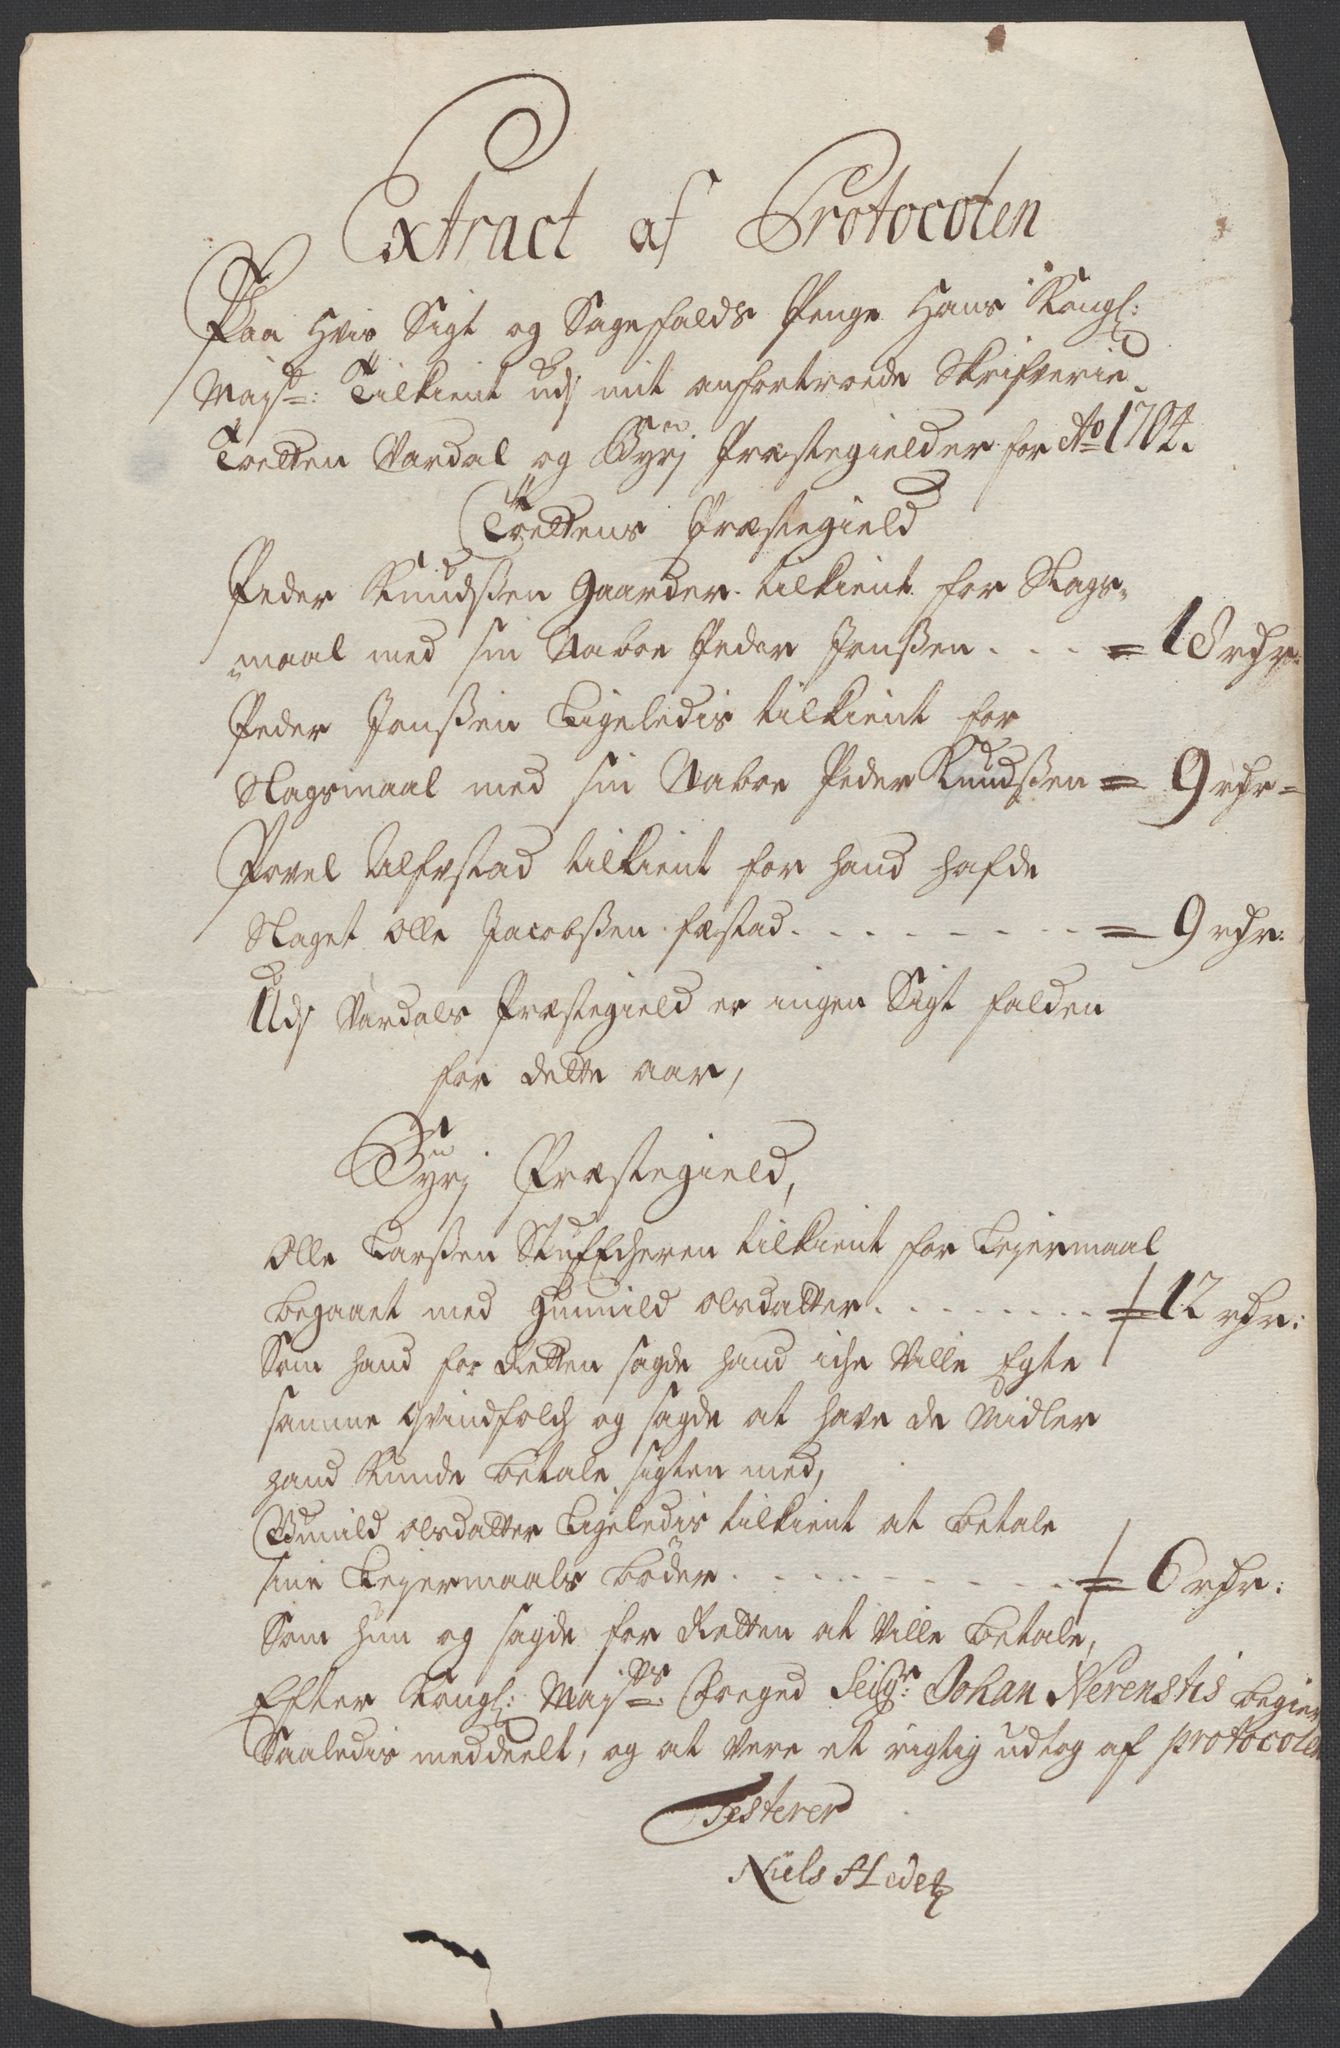 Extract af Protocolen
Paa Hvis Sigt og Sagefalds Penge Hans Kongl:
Majst: Tilkient udj mit anfortroede Skrifverie
Toetten Vardal og Byrj Præstegielder for Ao 1704.
Toettens Præstegield
Peder Knudsßen Gaarder tilkient for Slags-
maal med sin Naboe Peder Jonßen . . . = 18 rdr:
Peder Jonßen Ligeledis tilkient for
Slagsmaal med sin Naboe Peder Knudsßen = 9 rdr =
Povel Alfstad tilkient for hand hafde
Slaget Olle Jacobßen fæstad . . . . . . . . = 9 rdr:
Udj Vardals Præstegield er ingen Sigt falden
for dette aar,
Byrj Præstegield,
Olle Larßen tilkient for Leyermaal
begaaet med Gunnild olsdatter . . . . . . . = 12 rdr:
Som hand for Retten sagde hand iche Ville Egte
samme qvindfolch og sagde at have de Midler
hand Kunde betale sigten med,
Gunild olsdatter Ligeledis tilkient at betale
sine Leyermaals böder . . . . . . . . . = 6 rdr:
Som hun og sagde for Retten at Ville betale,
Efter Kongl: Majsts: Foeged Seigr: Johan Nerenstis begier
Saaledis meddeelt, og at Vere et rigtig udtog af protocolen
Testerer
Niels